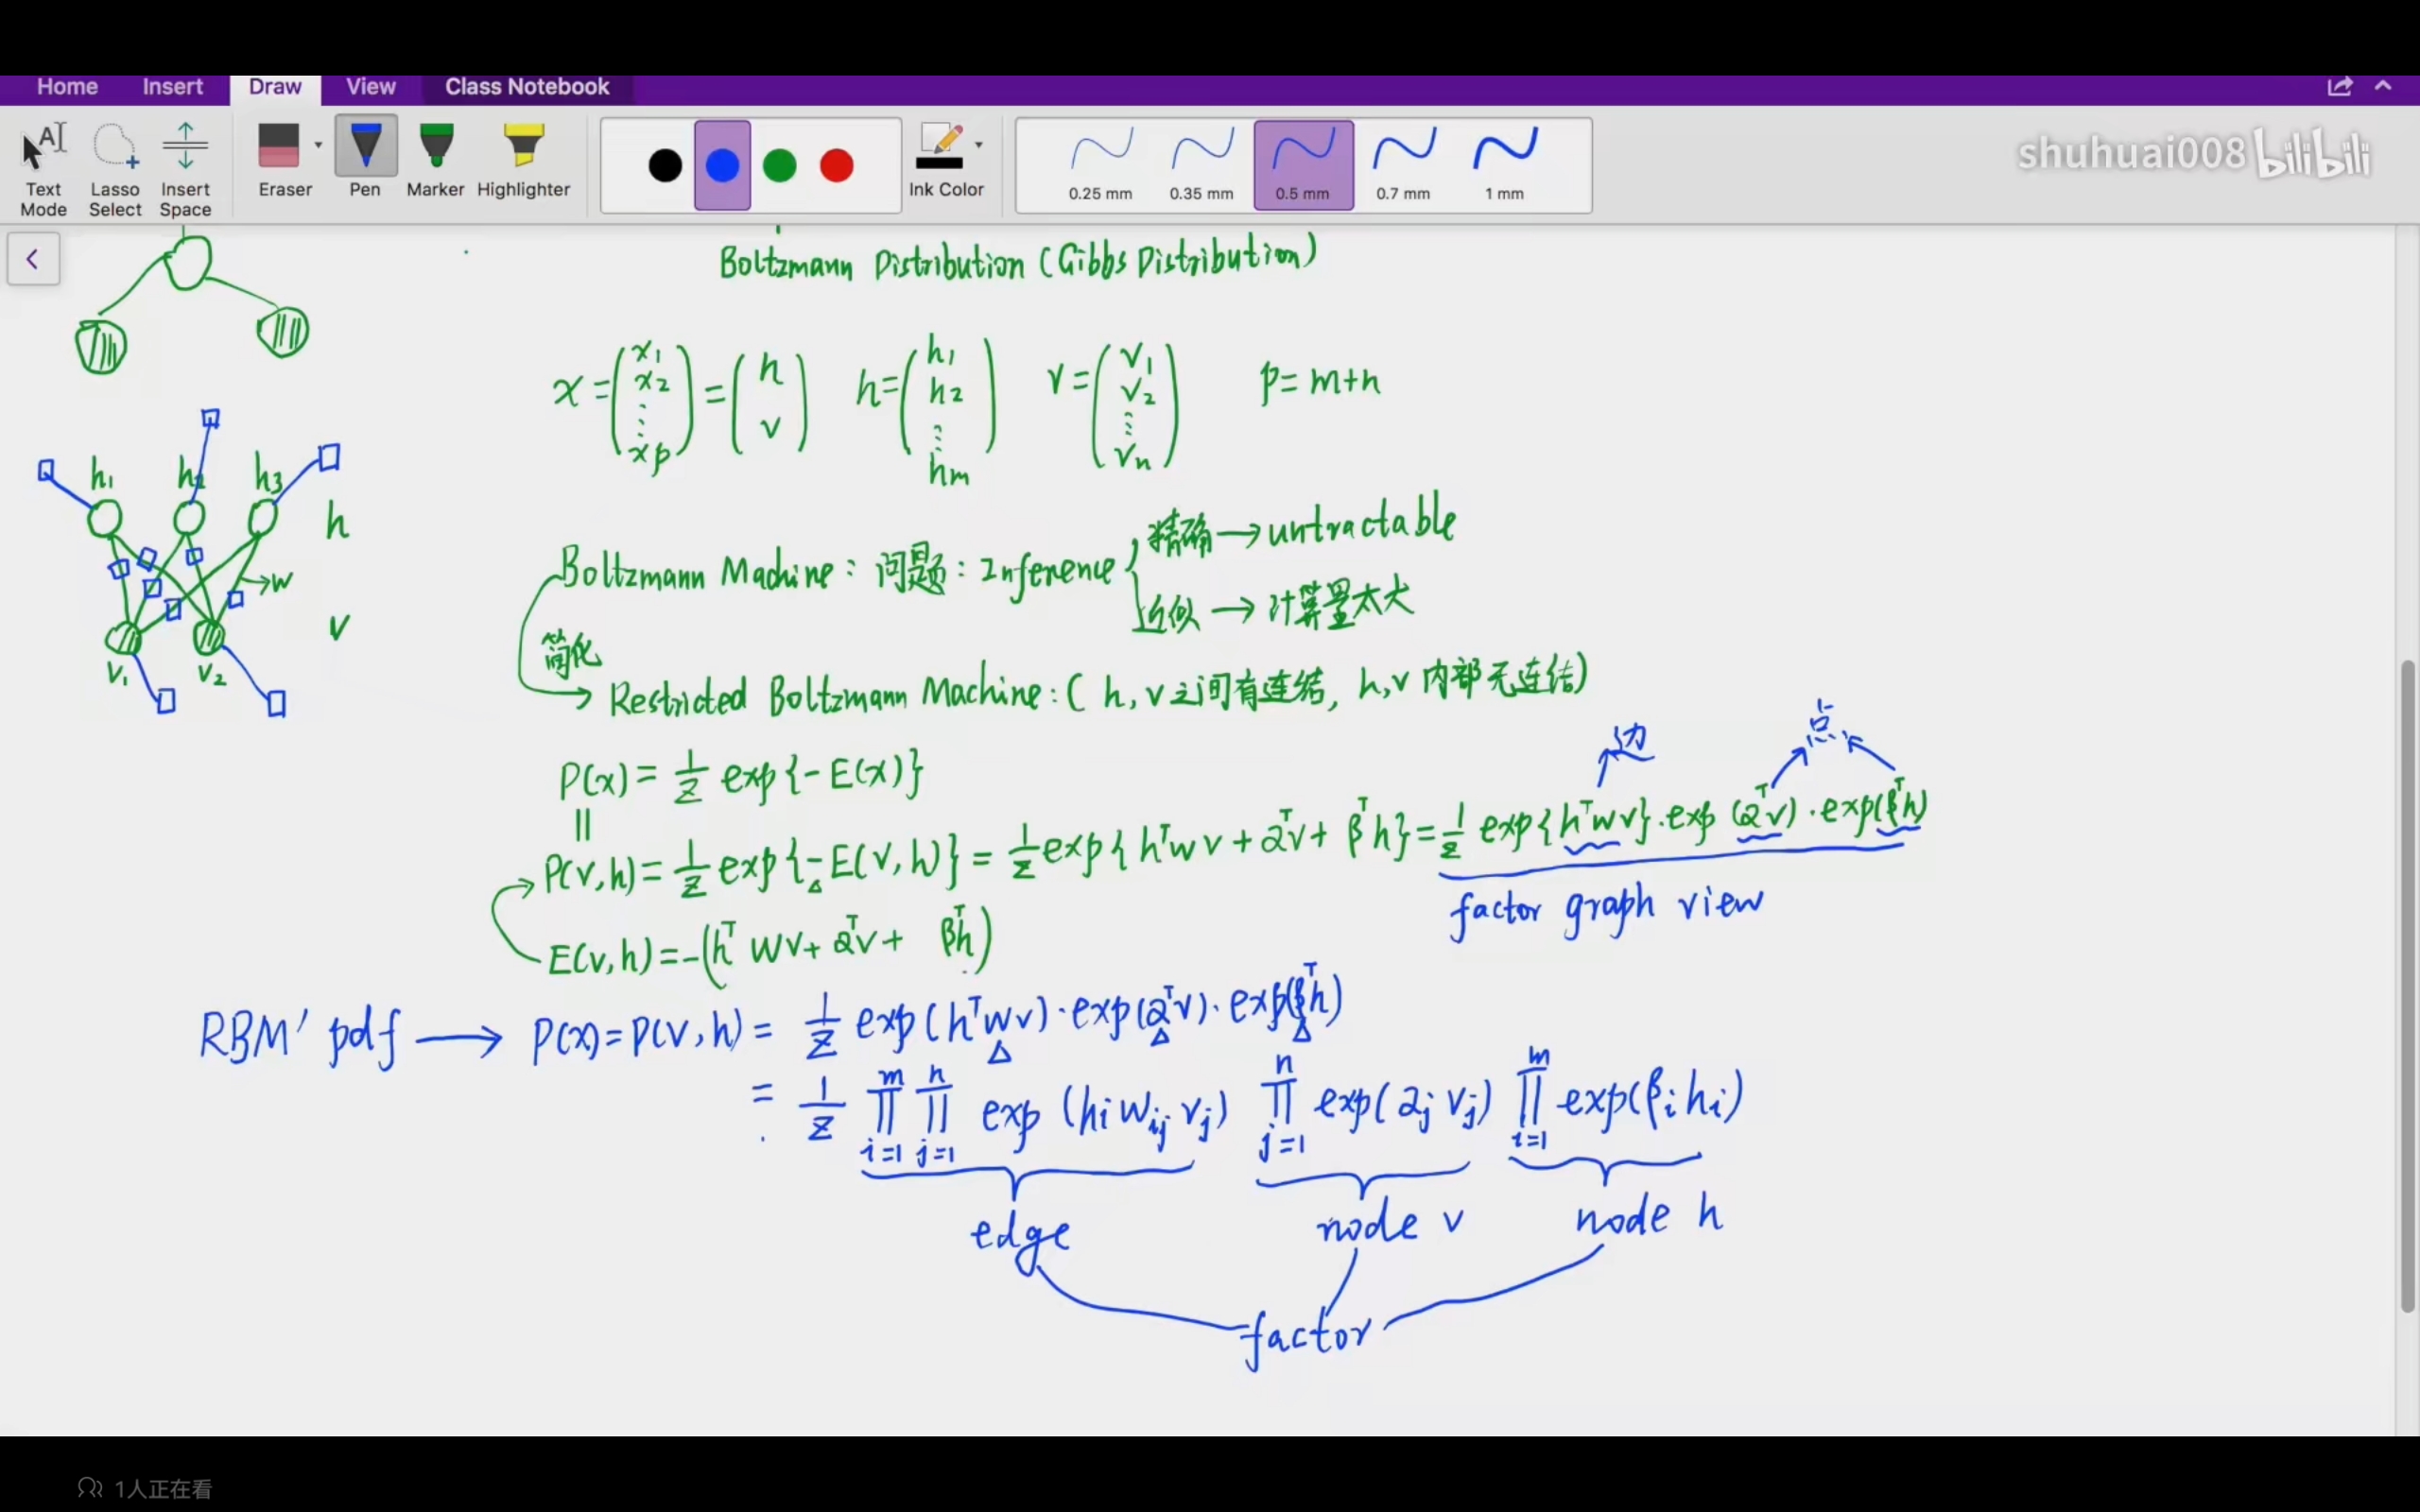 Home Insert Draw View Class Notebook
Text Mode Lasso Select Insert Space Eraser Pen Marker Highlighter Ink Color 0.25 mm 0.35 mm 0.5 mm 0.7 mm 1 mm
shuhuai008 bilibili
Boltzmann Distribution (Gibbs Distribution)
x = (x₁ x₂ ⋮ xp) = (h v) h = (h₁ h₂ ⋮ hm) v = (v₁ v₂ ⋮ vn) p = m+n
h₁ h₂ h₃ h
w
v
v₁ v₂
Boltzmann Machine: 问题: Inference { 精确 → untractable
近似 → 计算量太大
简化
→ Restricted Boltzmann Machine: ( h, v 之间有连结, h,v 内部无连结)
边 点
P(x) = 1/z exp{-E(x)}
||
P(v,h) = 1/z exp{-E(v,h)} = 1/z exp{hᵀwv + αᵀv + βᵀh} = 1/z exp{hᵀwv}·exp(αᵀv)·exp(βᵀh)
factor graph view
E(v,h) = -(hᵀwv + αᵀv + βᵀh)
RBM' pdf → P(x) = P(v,h) = 1/z exp(hᵀwv)·exp(αᵀv)·exp(βᵀh)
= 1/z ∏_{i=1}^{m} ∏_{j=1}^{n} exp(hᵢwᵢⱼvⱼ) ∏_{j=1}^{n} exp(αⱼvⱼ) ∏_{i=1}^{m} exp(βᵢhᵢ)
edge node v node h
factor
1人正在看